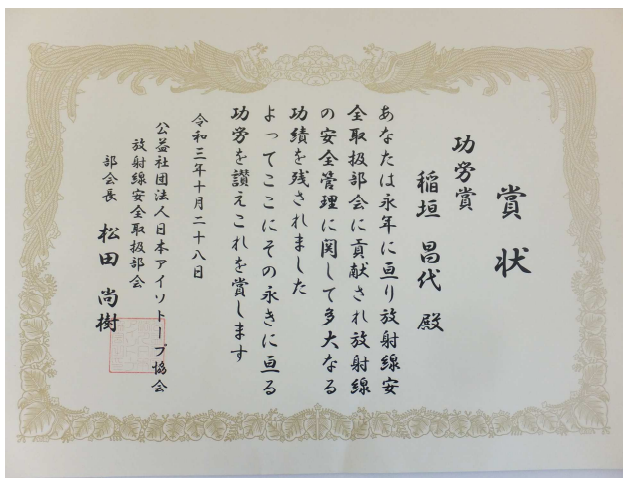 賞状
功労賞
稲垣 昌代 殿
あなたは永年に亘り放射線安
全取扱部会に貢献され放射線
の安全管理に関して多大なる
功績を残されました
よってここにその永きに亘る
功労を讃えこれを賞します
令和三年十月二十八日
公益社団法人日本アイソトープ協会
放射線安全取扱部会
部会長 松田 尚樹